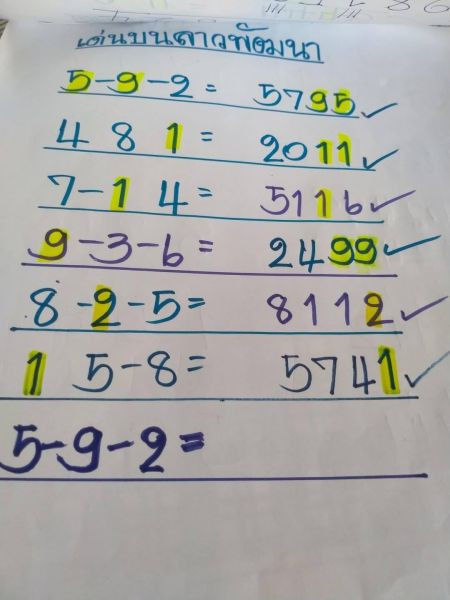 เด่นบนลาวพัฒนา
5-9-2= 5795
4 8 1= 2011
7-1 4= 5116
9-3-6= 2499
8-2-5= 8112
1 5-8= 5741
5-9-2=